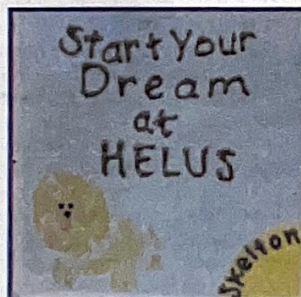 Start Your
Dream
at
HELUS
Skelton